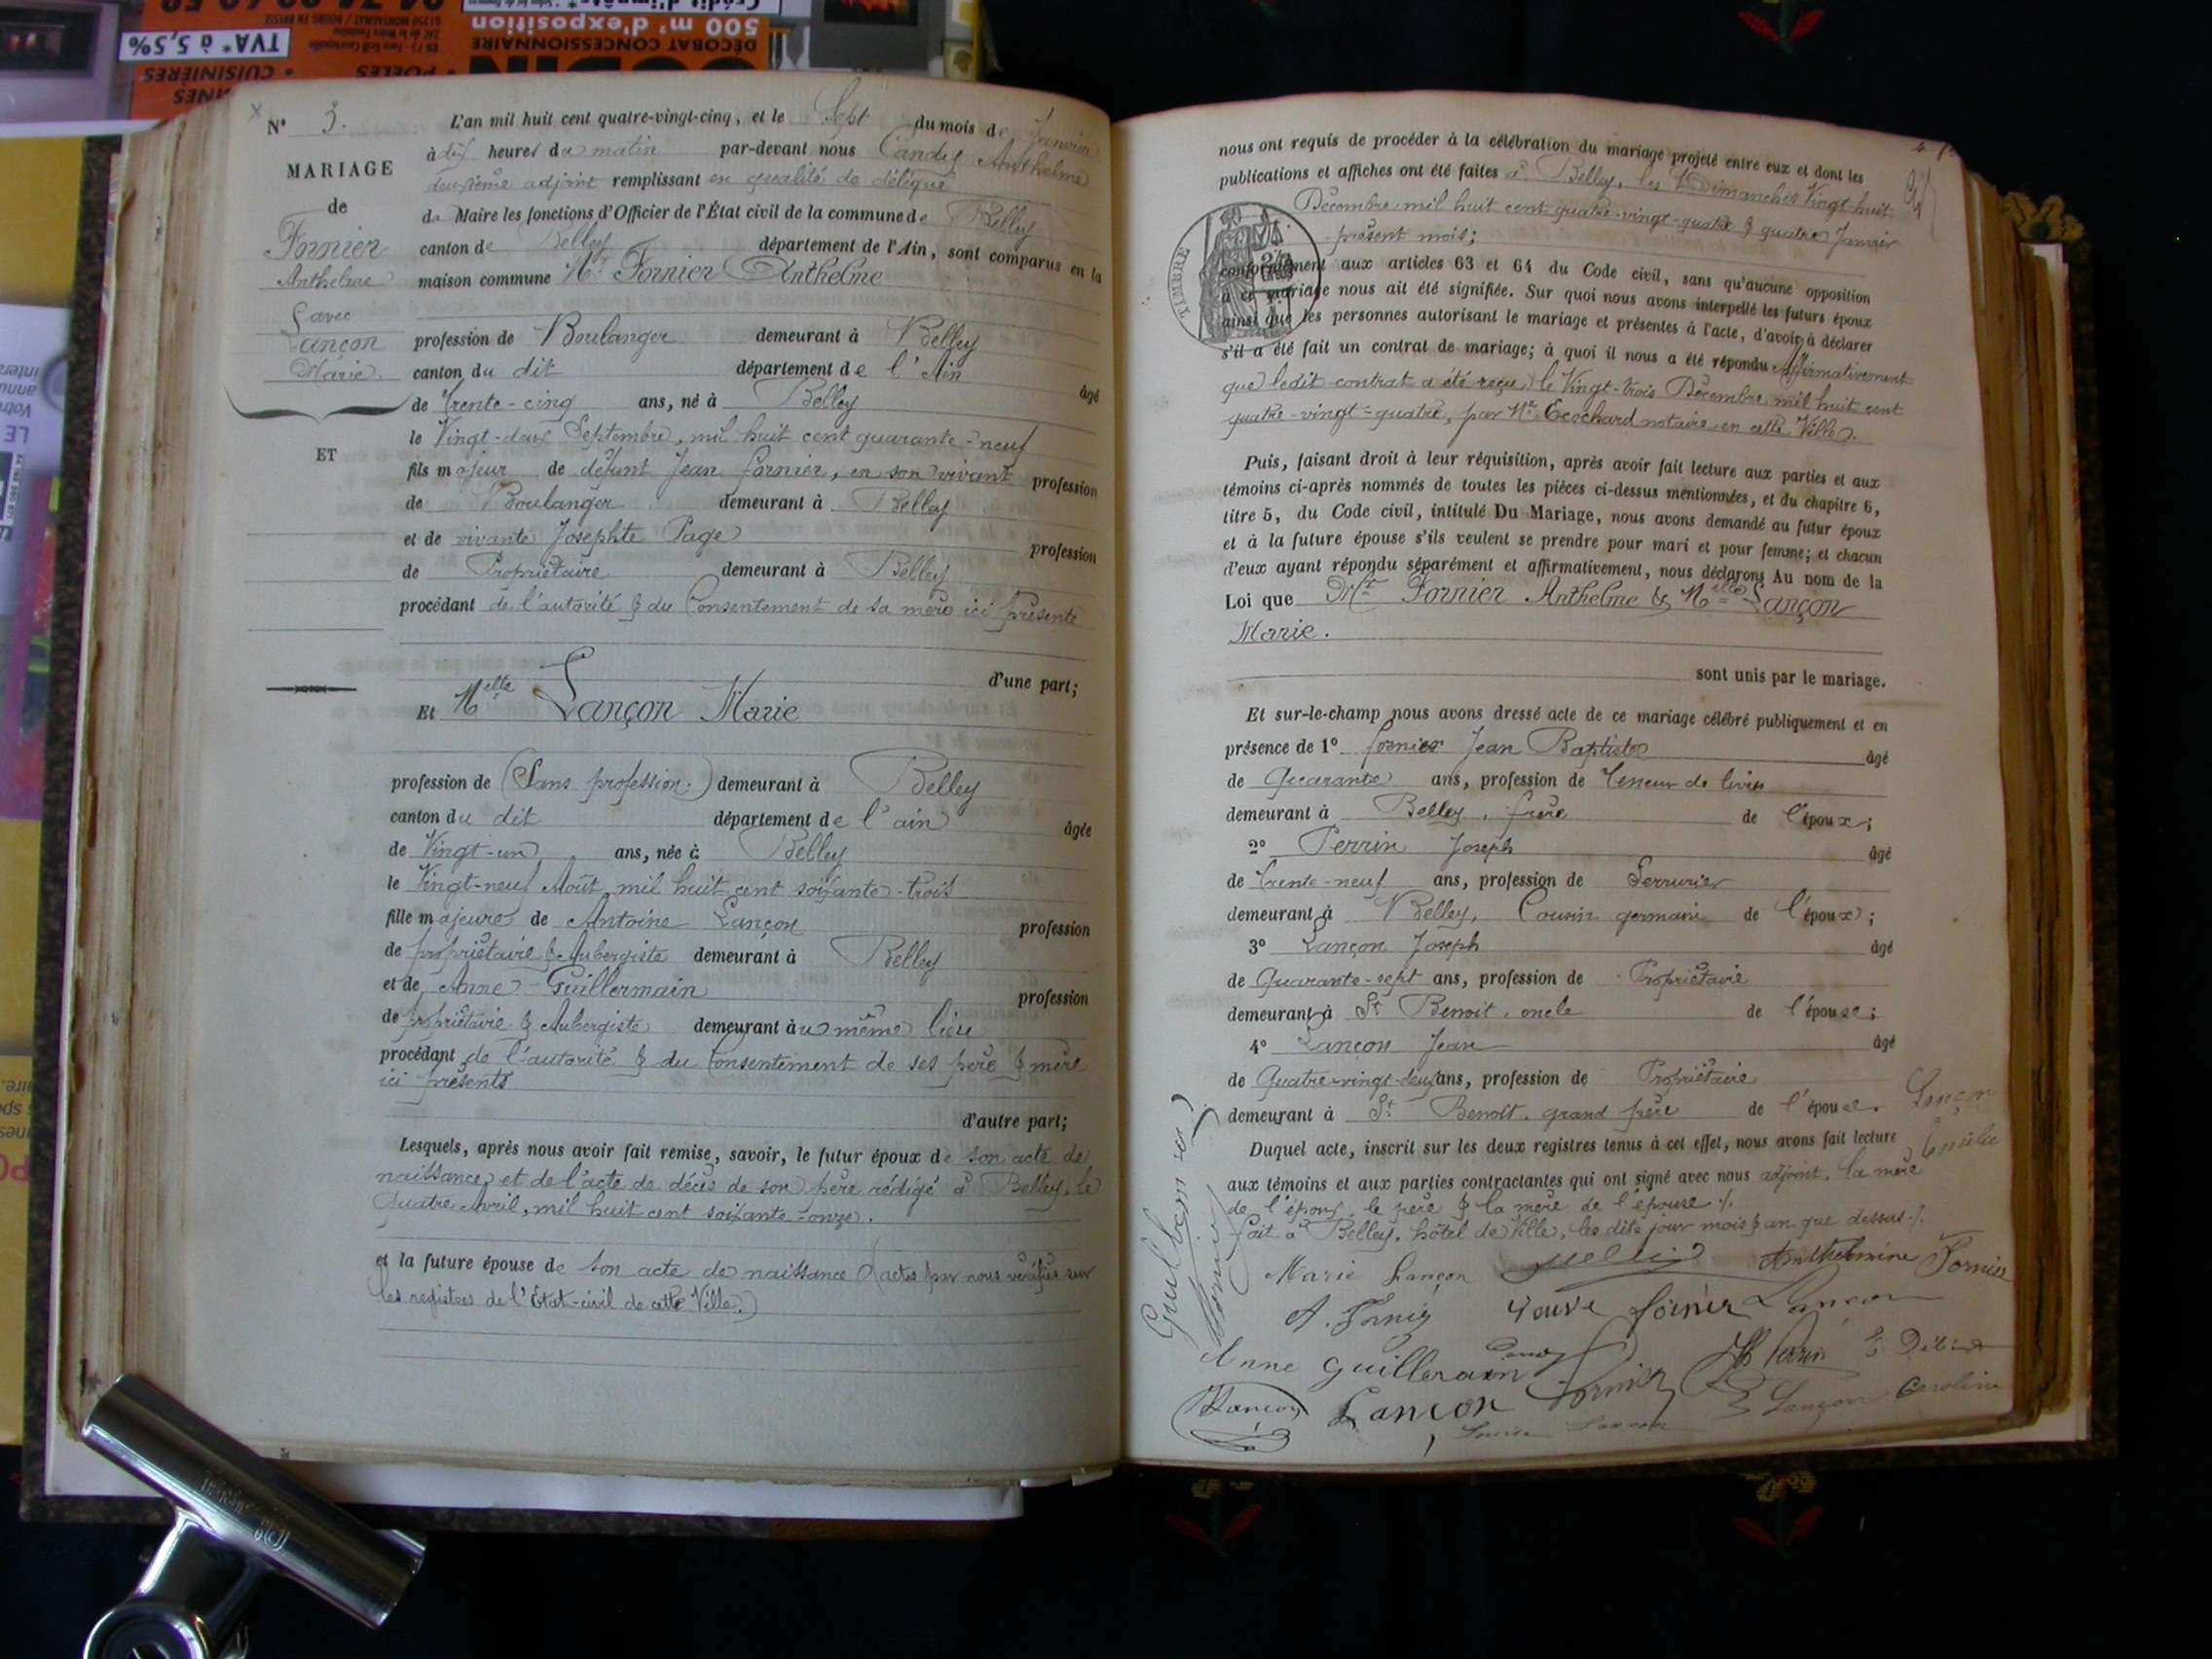 TVA* à 5,5%
500 m² d'exposition
DÉCOBAT CONCESSIONNAIRE
• POELES
• CUISINIÈRES
N° 3.
MARIAGE
de
Fornier
Anthelme
avec
Lançon
Marie
ET
L'an mil huit cent quatre-vingt-cinq, et le Sept du mois de Janvier
à dix heures du matin par-devant nous Candy Anthelme
deuxième adjoint remplissant en qualité de délégué
du Maire les fonctions d'Officier de l'État civil de la commune de Belley
canton de Belley département de l'Ain, sont comparus en la
maison commune Mr Fornier Anthelme
profession de Boulanger demeurant à Belley
canton du dit département de l'Ain âgé
de trente-cinq ans, né à Belley
le Vingt-deux Septembre, mil huit cent quarante-neuf
fils majeur de défunt Jean Fornier, en son vivant profession
de Boulanger demeurant à Belley
et de vivante Josephte Page profession
de Propriétaire demeurant à Belley
procédant de l'autorité & du Consentement de sa mère ici présente
d'une part;
Et Melle Lançon Marie
profession de (Sans profession.) demeurant à Belley
canton du dit département de l'ain âgée
de Vingt-un ans, née à Belley
le Vingt-neuf Août mil huit cent soixante-trois
fille majeure de Antoine Lançon profession
de propriétaire & Aubergiste demeurant à Belley
et de Anne Guillermain profession
de propriétaire & Aubergiste demeurant au même lieu
procédant de l'autorité & du Consentement de ses père & mère
ici présents
d'autre part;
Lesquels, après nous avoir fait remise, savoir, le futur époux de son acte de
naissance, et de l'acte de décès de son père rédigé à Belley, le
Quatre Avril, mil huit cent soixante-onze.
et la future épouse de son acte de naissance (actes par nous vérifiés sur
les registres de l'État-civil de cette Ville.)
nous ont requis de procéder à la célébration du mariage projeté entre eux et dont les
publications et affiches ont été faites à Belley, les Dimanches Vingt-huit
Décembre mil huit cent quatre-vingt-quatre & quatre Janvier
présent mois;
TIMBRE
conformément aux articles 63 et 64 du Code civil, sans qu'aucune opposition
à ce mariage nous ait été signifiée. Sur quoi nous avons interpellé les futurs époux
ainsi que les personnes autorisant le mariage et présentes à l'acte, d'avoir à déclarer
s'il a été fait un contrat de mariage; à quoi il nous a été répondu Affirmativement
que ledit contrat a été reçu, le Vingt-trois Décembre mil huit cent
quatre-vingt-quatre, par Me Ecochard notaire en cette Ville.
Puis, faisant droit à leur réquisition, après avoir fait lecture aux parties et aux
témoins ci-après nommés de toutes les pièces ci-dessus mentionnées, et du chapitre 6,
titre 5, du Code civil, intitulé Du Mariage, nous avons demandé au futur époux
et à la future épouse s'ils veulent se prendre pour mari et pour femme; et chacun
d'eux ayant répondu séparément et affirmativement, nous déclarons Au nom de la
Loi que Mr Fornier Anthelme & Melle Lançon
Marie.
sont unis par le mariage.
Et sur-le-champ nous avons dressé acte de ce mariage célébré publiquement et en
présence de 1° Fornier Jean Baptiste âgé
de Quarante ans, profession de teneur de livres
demeurant à Belley, frère de l'époux;
2° Perrin Joseph âgé
de trente-neuf ans, profession de Serrurier
demeurant à Belley, Cousin germain de l'époux;
3° Lançon Joseph âgé
de Quarante-sept ans, profession de Propriétaire
demeurant à St Benoit, oncle de l'épouse;
4° Lançon Jean âgé
de Quatre-vingt-deux ans, profession de Propriétaire
demeurant à St Benoit, grand père de l'épouse.
Duquel acte, inscrit sur les deux registres tenus à cet effet, nous avons fait lecture
aux témoins et aux parties contractantes qui ont signé avec nous adjoint, la mère
de l'époux, le père & la mère de l'épouse ./.
fait à Belley, hôtel de Ville, les dits jour mois & an que dessus ./.
Lançon
Emélie
Marie Lançon Anthelmine Fornier
A. Fornier Veuve Fornier Lançon
Anne Guillerain Candy Perrin
Lançon Lançon Fornier Lançon Caroline
Lançon